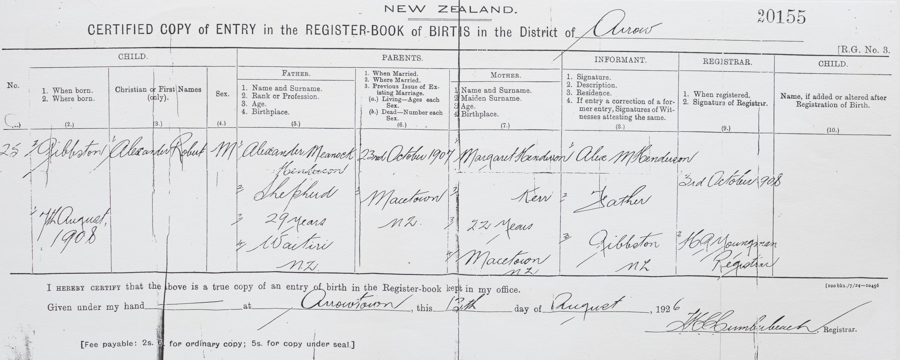 NEW ZEALAND.
20155
CERTIFIED COPY of ENTRY in the REGISTER-BOOK of BIRTHS in the District of Arrow
[R.G. No. 3.
CHILD.
PARENTS.
INFORMANT.
REGISTRAR.
CHILD.
No.
1. When born.
2. Where born.
Christian or First Names
(only).
Sex.
FATHER.
1. Name and Surname.
2. Rank or Profession.
3. Age.
4. Birthplace.
1. When Married.
2. Where Married.
3. Previous Issue of Existing Marriage.
(a.) Living—Ages each Sex.
(b.) Dead—Number each Sex.
MOTHER.
1. Name and Surname.
2. Maiden Surname.
3. Age.
4. Birthplace.
1. Signature.
2. Description.
3. Residence.
4. If entry a correction of a former entry, Signatures of Witnesses attesting the same.
1. When registered.
2. Signature of Registrar.
Name, if added or altered after
Registration of Birth.
(2.) (3.) (4.) (5.) (6.) (7.) (8.) (9.) (10.)
25 Gibbston Alexander Robert M Alexander Henderson 23rd October 1907 Margaret Henderson Alex M Henderson
3rd October 1908
Shepherd Macetown Kerr Father
7th August, 29 Years NZ 22 Years
1908 Waitiri Macetown Gibbston
NZ NZ NZ Registrar
I HEREBY CERTIFY that the above is a true copy of an entry of birth in the Register-book kept in my office.
Given under my hand at Arrowtown, this 13th day of August, 1926
Registrar.
[Fee payable: 2s. for ordinary copy; 5s. for copy under seal.]